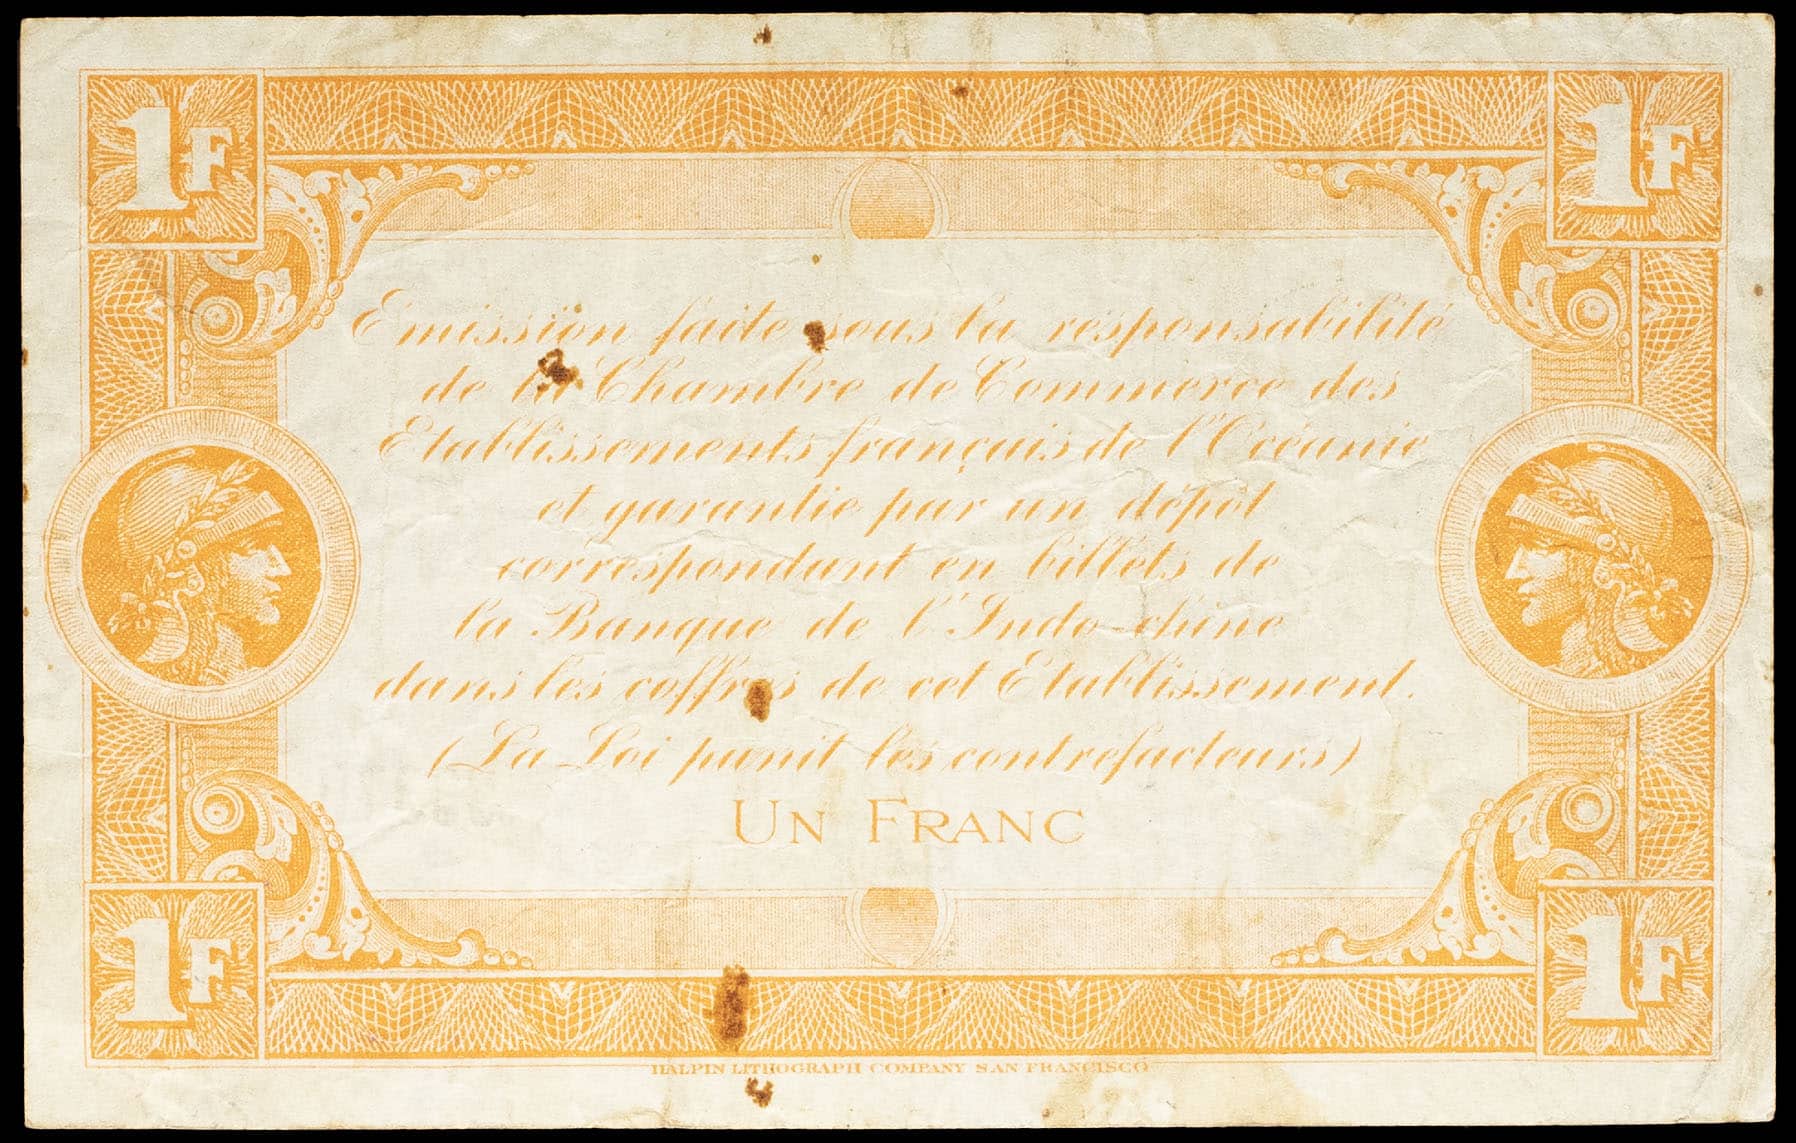 1F 1F
Emission faite sous la responsabilité
de la Chambre de Commerce des
Etablissements français de l'Océanie
et garantie par un dépôt
correspondant en billets de
la Banque de l'Indo-chine
dans les coffres de cet Etablissement.
(La Loi punit les contrefacteurs)
UN FRANC
1F 1F
HALPIN LITHOGRAPH COMPANY SAN FRANCISCO